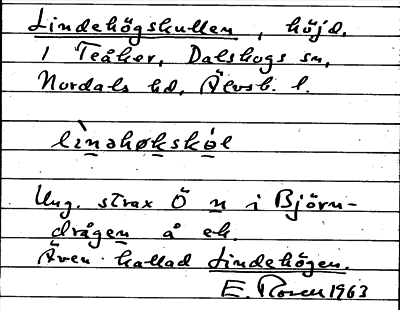 Lindehögskullen, höjd.
i Teåker, Dalskogs sn,
Nordals hd, Älvsb. l.
lìnəhøkskól
Ung. strax Ö n i Björn-
drågen å ek.
Även kallad Lindehögen.
E. Rosell 1963